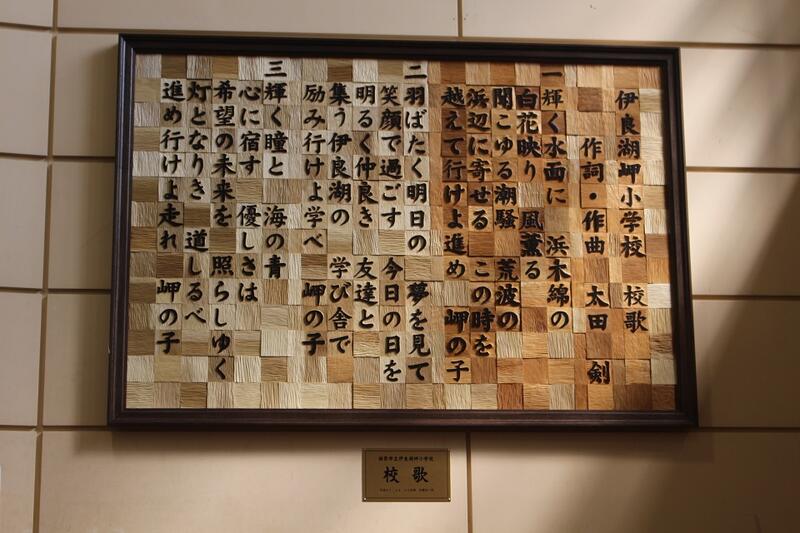 伊良湖岬小学校 校歌
作詞・作曲 太田 剣
一 輝く水面に 浜木綿の
白花映り 風薫る
聞こゆる潮騒 荒波の
浜辺に寄せる この時を
越えて行けよ進め 岬の子
二 羽ばたく明日の 夢を見て
笑顔で過ごす 今日の日を
明るく仲良き 友達と
集う伊良湖の 学び舎で
励み行けよ学べ 岬の子
三 輝く瞳と 海の青
心に宿す 優しさは
希望の未来を 照らしゆく
灯となりき 道しるべ
進め行けよ走れ 岬の子
田原市立伊良湖岬小学校
校歌